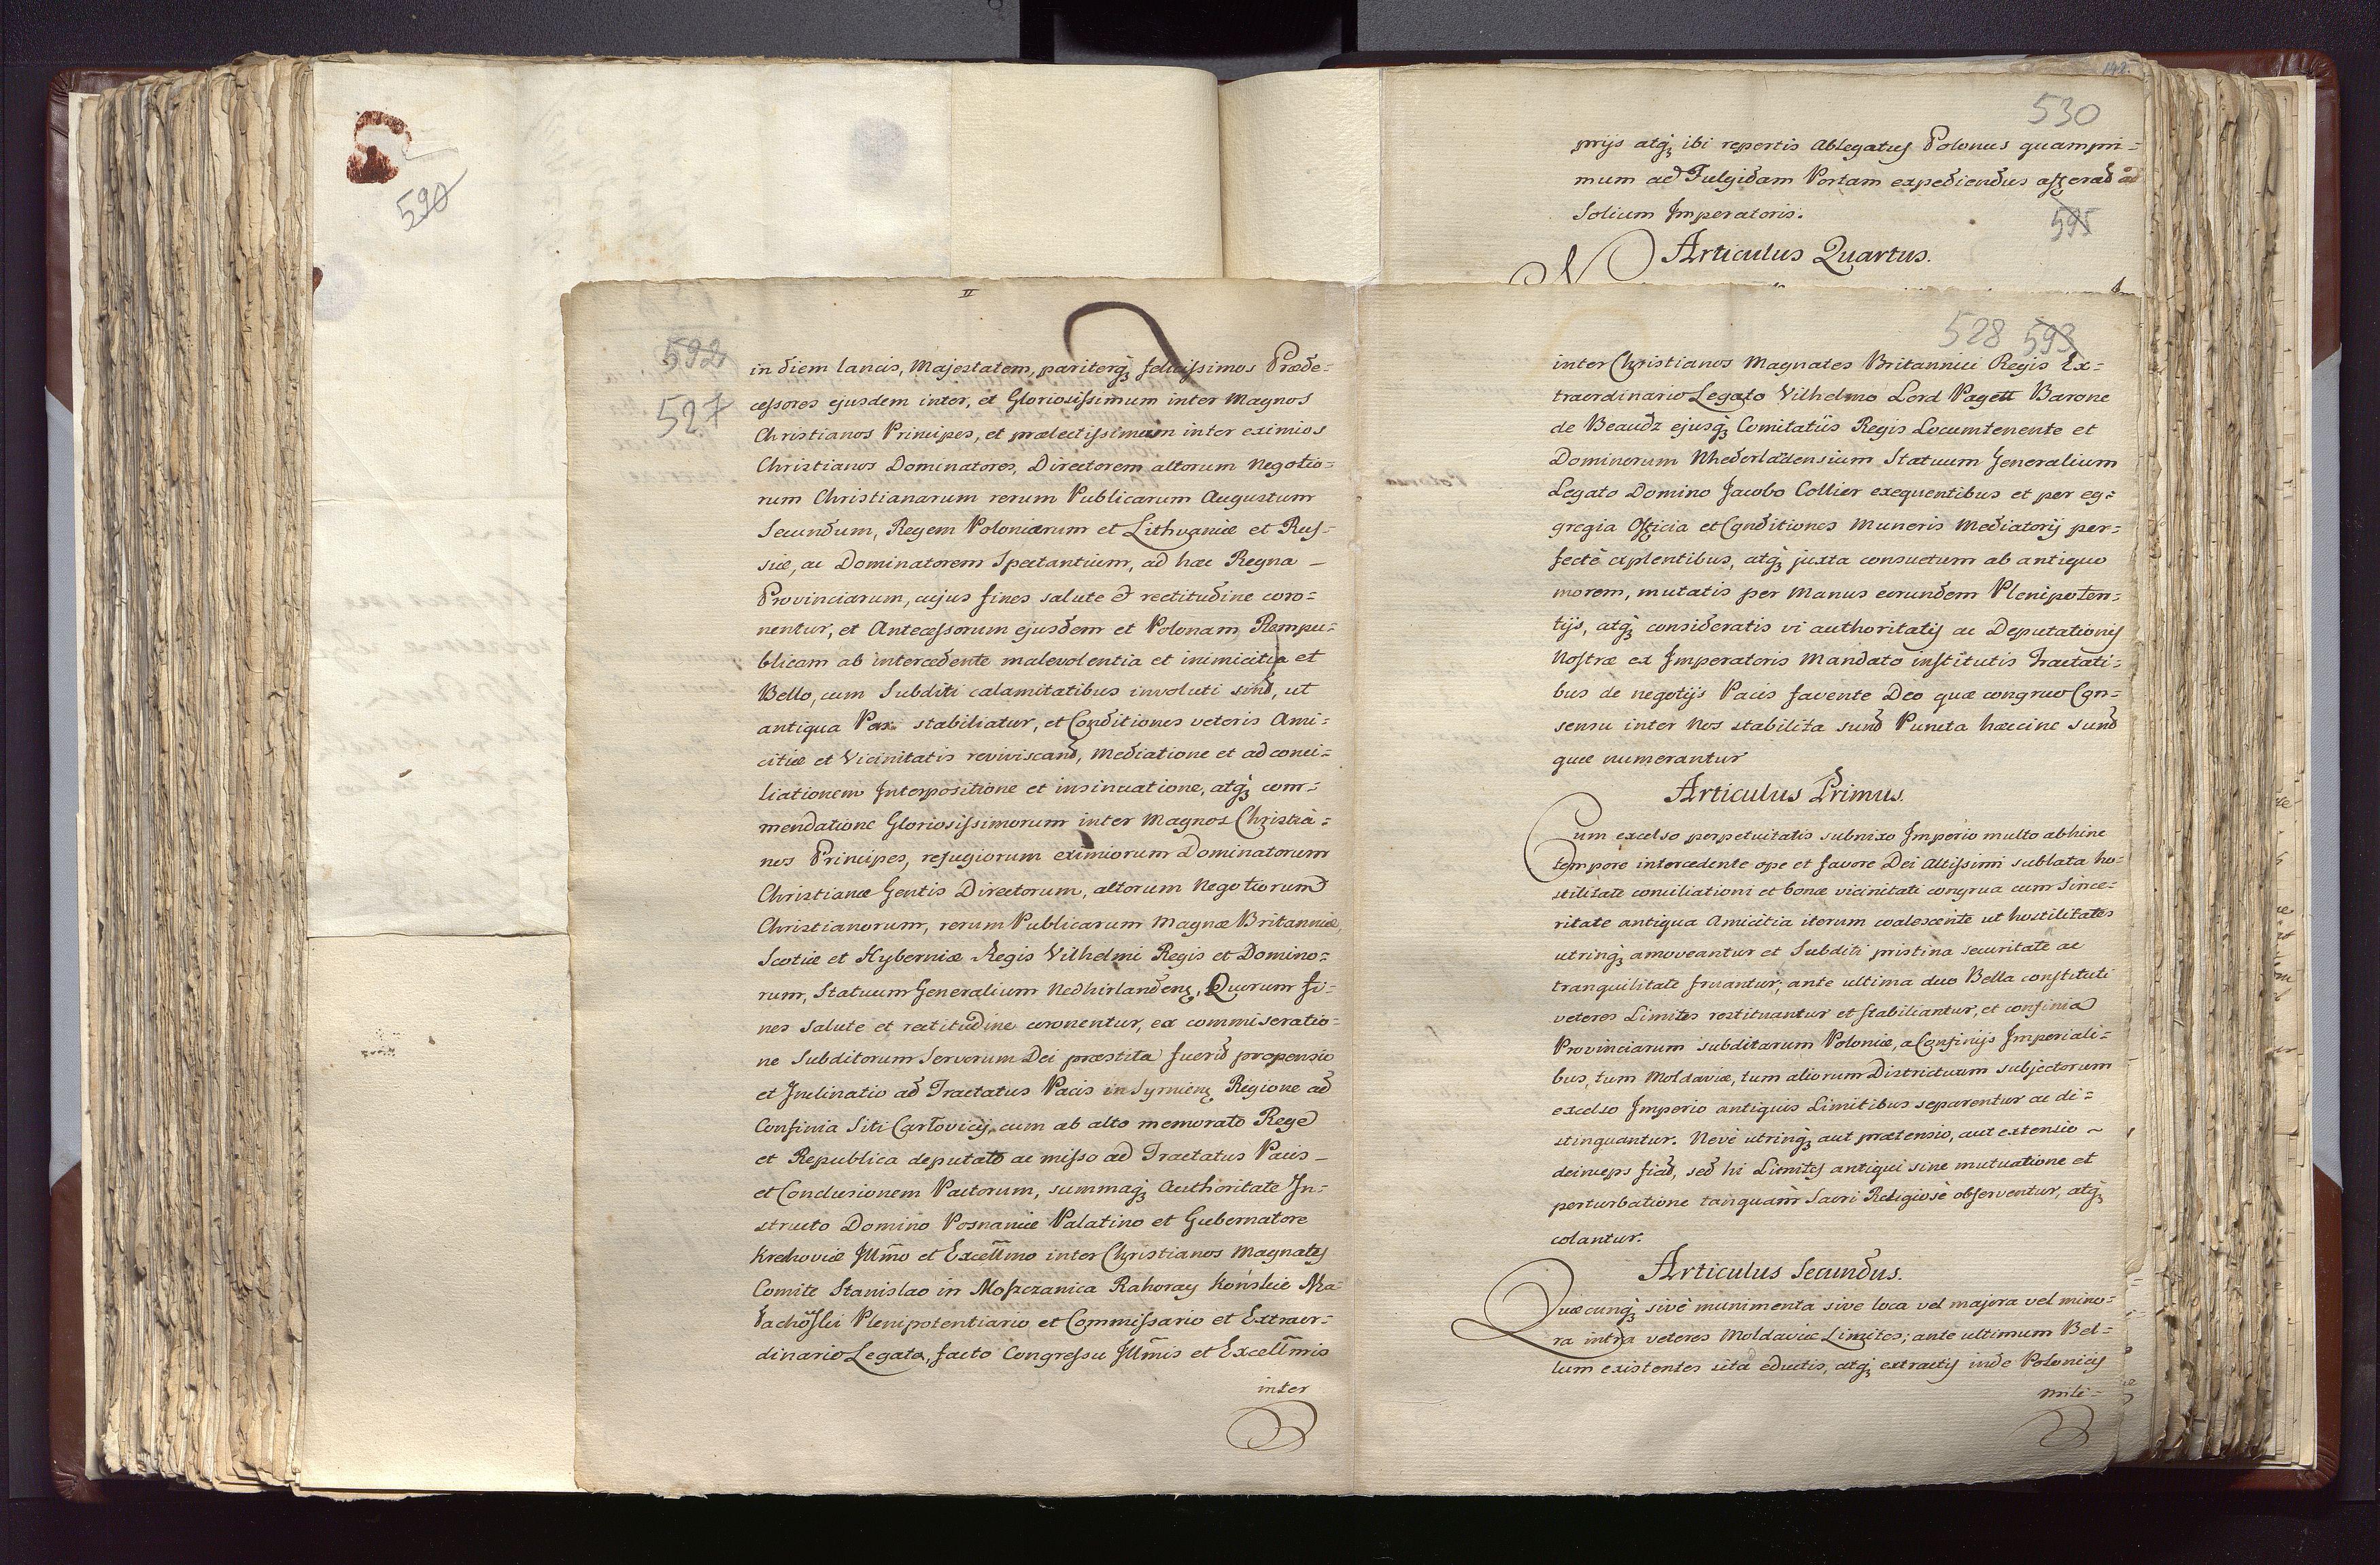 590
II
592
527
in diem lancis, Majestatem, pariterq; felicissimos Præde=
cessores ejusdem inter, et Gloriosissimum inter Magnos
Christianos Principes, et prælectissimum inter eximios
Christianos Dominatores, Directorem altorum Negotio=
rum Christianarum rerum Publicarum Augustum
Secundum, Regem Poloniarum et Lithvaniæ et Rus=
siæ, ac Dominatorem Spectantium, ad hæc Regna –
Provinciarum, cujus fines salute & rectitudine coro=
nentur, et Antecessorum ejusdem et Polonam Rempu=
blicam ab intercedente malevolentia et inimicitia et
Bello, cum Subditi calamitatibus involuti sind, ut
antiqua Pax stabiliatur, et Conditiones veteris Ami=
citiæ et Vicinitatis reviviscand, Mediatione et ad conci=
liationem Interpositione et insinuatione, atq; com=
mendatione Gloriosissimorum inter Magnos Christia=
nos Principes, refugiorum eximiorum Dominatorum
Christianæ Gentis Directorum, altorum Negotiorum
Christianorum, rerum Publicarum Magnæ Britanniæ,
Scotiæ et Hyberniæ Regis Vilhelmi Regis et Domino=
rum, Statuum Generalium Nedhirlandenz, Quorum fi=
nes salute et rectitudine coronentur, ex commiseratio=
ne Subditorum Servorum Dei præstita fuerid propensio
et Inclinatio ad Tractatus Pacis in Syrmienz Regione ad
Confinia Siti Carlovicij, cum ab alto memorato Rege
et Republica deputato ac misso ad Tractatus Pacis –
et Conclusionem Pactorum, summaq; Authoritate In=
structo Domino Posnaniæ Palatino et Gubernatore
Krehoviæ Illmo et Excellmo inter Christianos Magnates
Comite Stanislao in Moszczanica Rahoray Końskie Ma=
lachosski Plenipotentiario et Commissario et Extraor=
dinario Legato, facto Congressu Illmis et Excellmis
inter
142.
530
prijs atq; ibi repertis Ablegatus Polonus quampri=
mum ad Fulgidam Portam expediendus afferad ad
Solium Imperatoris.
595
Articulus Quartus.
528 593
inter Christianos Magnates Britannici Regis Ex=
traordinario Legato Vilhelmo Lord Pagett Barone
de Beaudz ejusq; Comitatûs Regis Locumtenente et
Dominorum Nhederladensium Statuum Generalium
Legato Domino Jacobo Collier exequentibus et per eg=
gregia Officia et Conditiones Muneris Mediatorij per=
fectè explentibus, atq; juxta consuetum ab antiquo
morem, mutatis per Manus eorundem Plenipoten=
tijs, atq; consideratis vi authoritatis ac Deputationis
Nostræ ex Imperatoris Mandato institutis Tractati=
bus de negotijs Pacis favente Deo quæ congruo Con=
sensu inter Nos stabilita sund Puncta hæccine sund
quæ numerantur
Articulus Primus.
Cum excelso perpetuitatis subnixo Imperio multo abhinc
tempore intercedente ope et favore Dei Altissimi sublata ho=
stilitate conciliationi et bonæ vicinitati congrua cum Since=
ritate antiqua Amicitia iterum coalescente ut hostilitates
utrinq; amoveantur et Subditi pristina securitate ac
tranquilitate fruantur; ante ultima duo Bella constituti
veteres Limites restituantur et stabiliantur, et confinia
Provinciarum subditarum Poloniæ, a Confinijs Imperiali=
bus, tum Moldaviæ, tum aliorum Districtuum subjectorum
excelso Imperio antiquis Limitibus separentur ac di=
stinguantur. Nevè utrinq; aut prætensio, aut extensio ~
deinceps fiad, sed hi Limites antiqui sine mutuatione et
perturbatione tanquam Sacri Religiosè observentur, atq;
colantur.
Articulus Secundus.
Quæcunq; sivè munimenta sive loca vel majora vel mino=
ra intra veteres Moldaviæ Limites; ante ultimum Bel=
lum existentes sita eductis, atq; extractis inde Polonicis
mili=